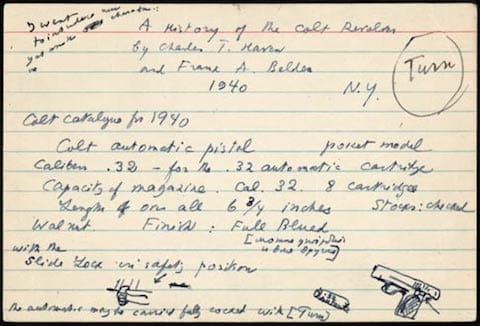 I want
A History of the Colt Revolver
by Charles T. Haven
and Frank A. Belden
1940
N.Y.
Turn
Colt catalogue for 1940
Colt automatic pistol pocket model
Calibers .32 – for the .32 automatic cartridge
Capacity of magazine. Cal. 32. 8 cartridges
Length of over all 6 3/4 inches Stocks: checked
Walnut Finish: Full Blued
with the
Slide Lock in safety position
The automatic may be carried fully cocked with [Turn]